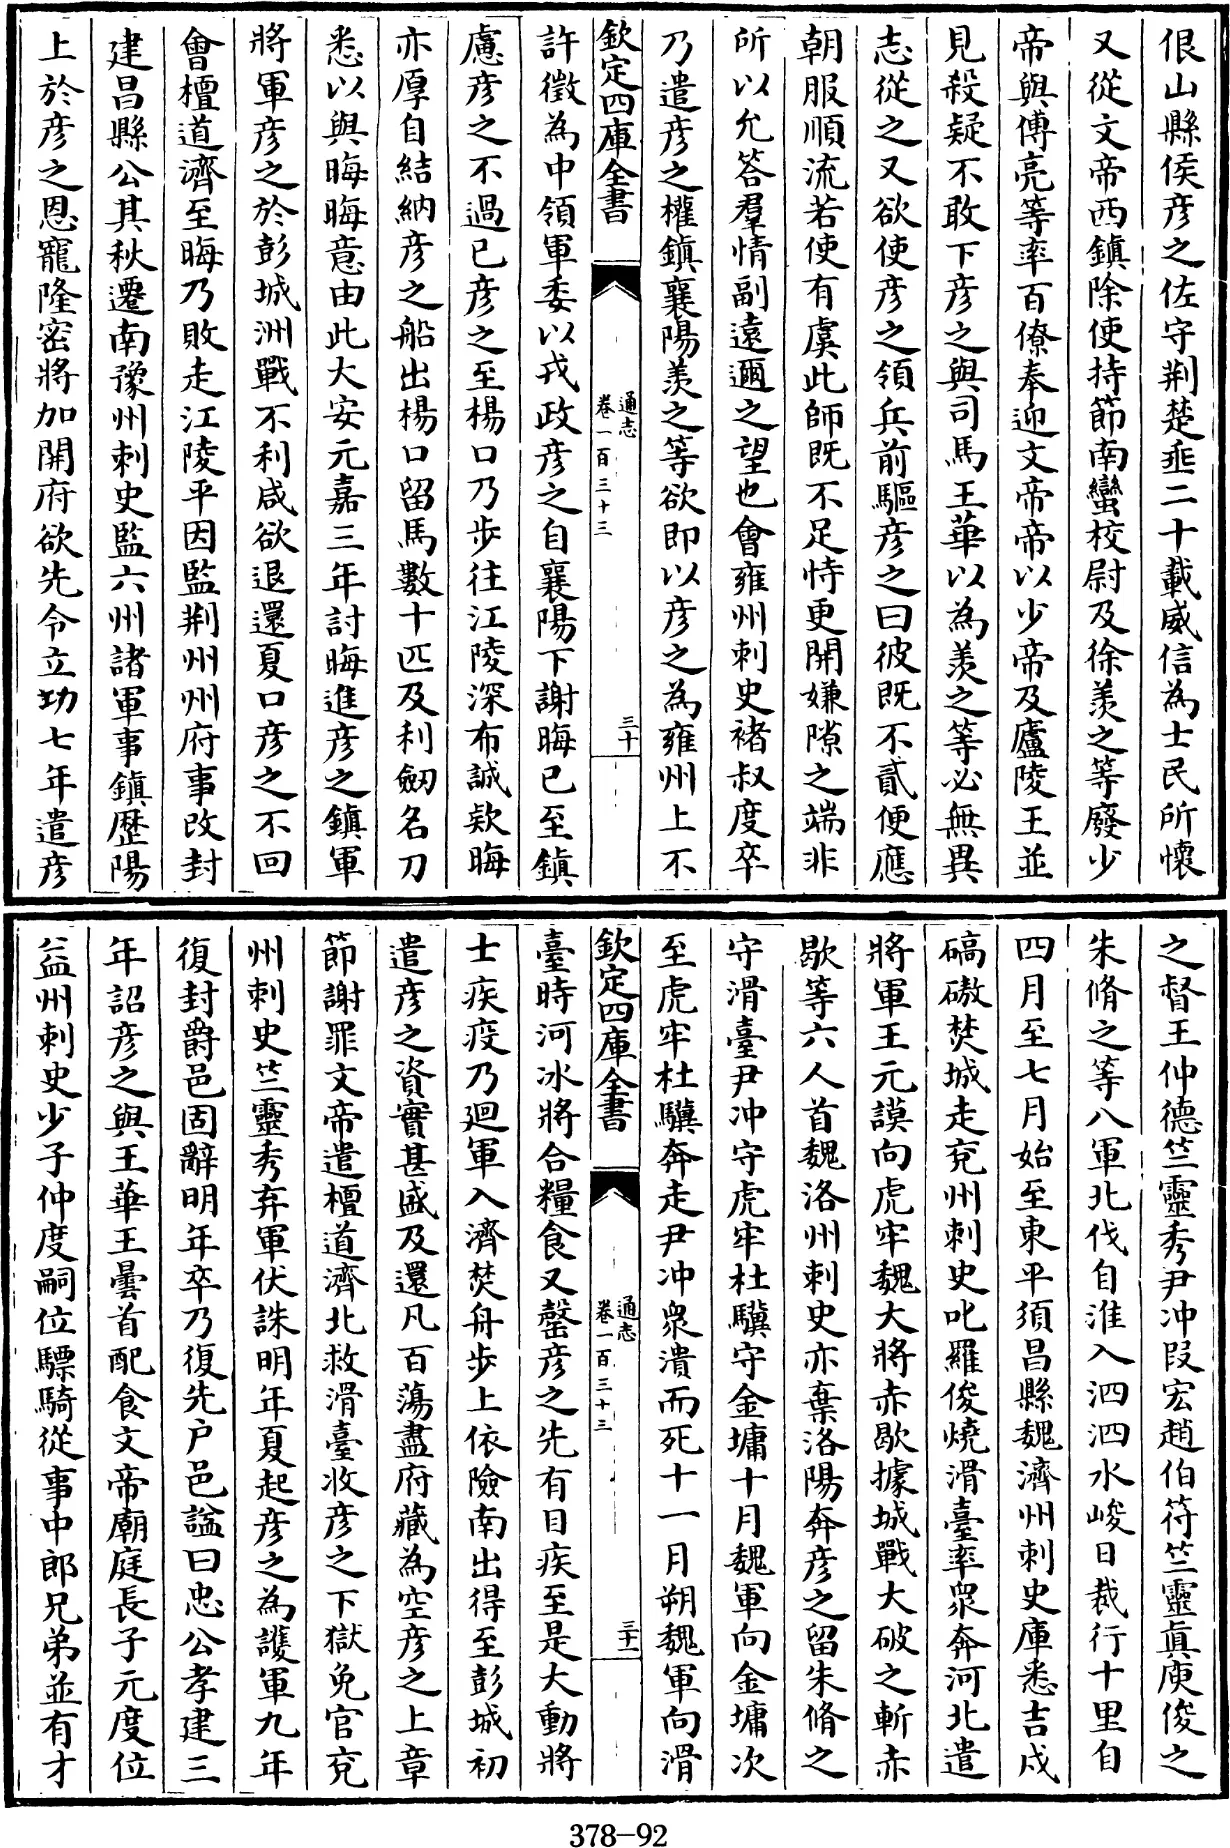 佷山縣侯彦之佐守荆楚垂二十載威信為士民所懷
又從文帝西鎮除使持節南蠻校尉及徐羡之等廢少
帝與傅亮等率百僚奉迎文帝帝以少帝及廬陵王並
見殺疑不敢下彦之與司馬王華以為羡之等必無異
志從之又欲使彦之領兵前驅彦之曰彼既不貳便應
朝服順流若使有虞此師既不足恃更開嫌隙之端非
所以允答羣情副遠邇之望也會雍州刺史褚叔度卒
乃遣彦之權鎮襄陽羡之等欲即以彦之為雍州上不
欽定四庫全書
通志
卷一百三十三
三十
許徵為中領軍委以戎政彦之自襄陽下謝晦已至鎮
慮彦之不過已彦之至楊口乃步往江陵深布誠欵晦
亦厚自結納彦之船出楊口留馬數十匹及利劒名刀
悉以與晦晦意由此大安元嘉三年討晦進彦之鎮軍
將軍彦之於彭城洲戰不利咸欲退還夏口彦之不回
會檀道濟至晦乃敗走江陵平因監荆州州府事改封
建昌縣公其秋遷南豫州刺史監六州諸軍事鎮歴陽
上於彦之恩寵隆密將加開府欲先令立功七年遣彦
之督王仲德竺靈秀尹冲叚宏趙伯符竺靈眞庾俊之
朱脩之等八軍北伐自淮入泗泗水峻日裁行十里自
四月至七月始至東平須昌縣魏濟州刺史庫悉吉戍
碻磝焚城走兖州刺史叱羅俊燒滑臺率衆奔河北遣
將軍王元謨向虎牢魏大將赤歇據城戰大破之斬赤
歇等六人首魏洛州刺史亦棄洛陽奔彦之留朱脩之
守滑臺尹冲守虎牢杜驥守金墉十月魏軍向金墉次
至虎牢杜驥奔走尹冲衆潰而死十一月朔魏軍向滑
欽定四庫全書
通志
卷一百三十三
三十一
臺時河冰將合糧食又罄彦之先有目疾至是大動將
士疾疫乃廻軍入濟焚舟步上依險南出得至彭城初
遣彦之資實甚盛及還凡百蕩盡府藏為空彦之上章
節謝罪文帝遣檀道濟北救滑臺收彦之下獄免官兖
州刺史竺靈秀弃軍伏誅明年夏起彦之為護軍九年
復封爵邑固辭明年卒乃復先户邑諡曰忠公孝建三
年詔彦之與王華王曇首配食文帝廟庭長子元度位
益州刺史少子仲度嗣位驃騎從事中郎兄弟並有才
378-92